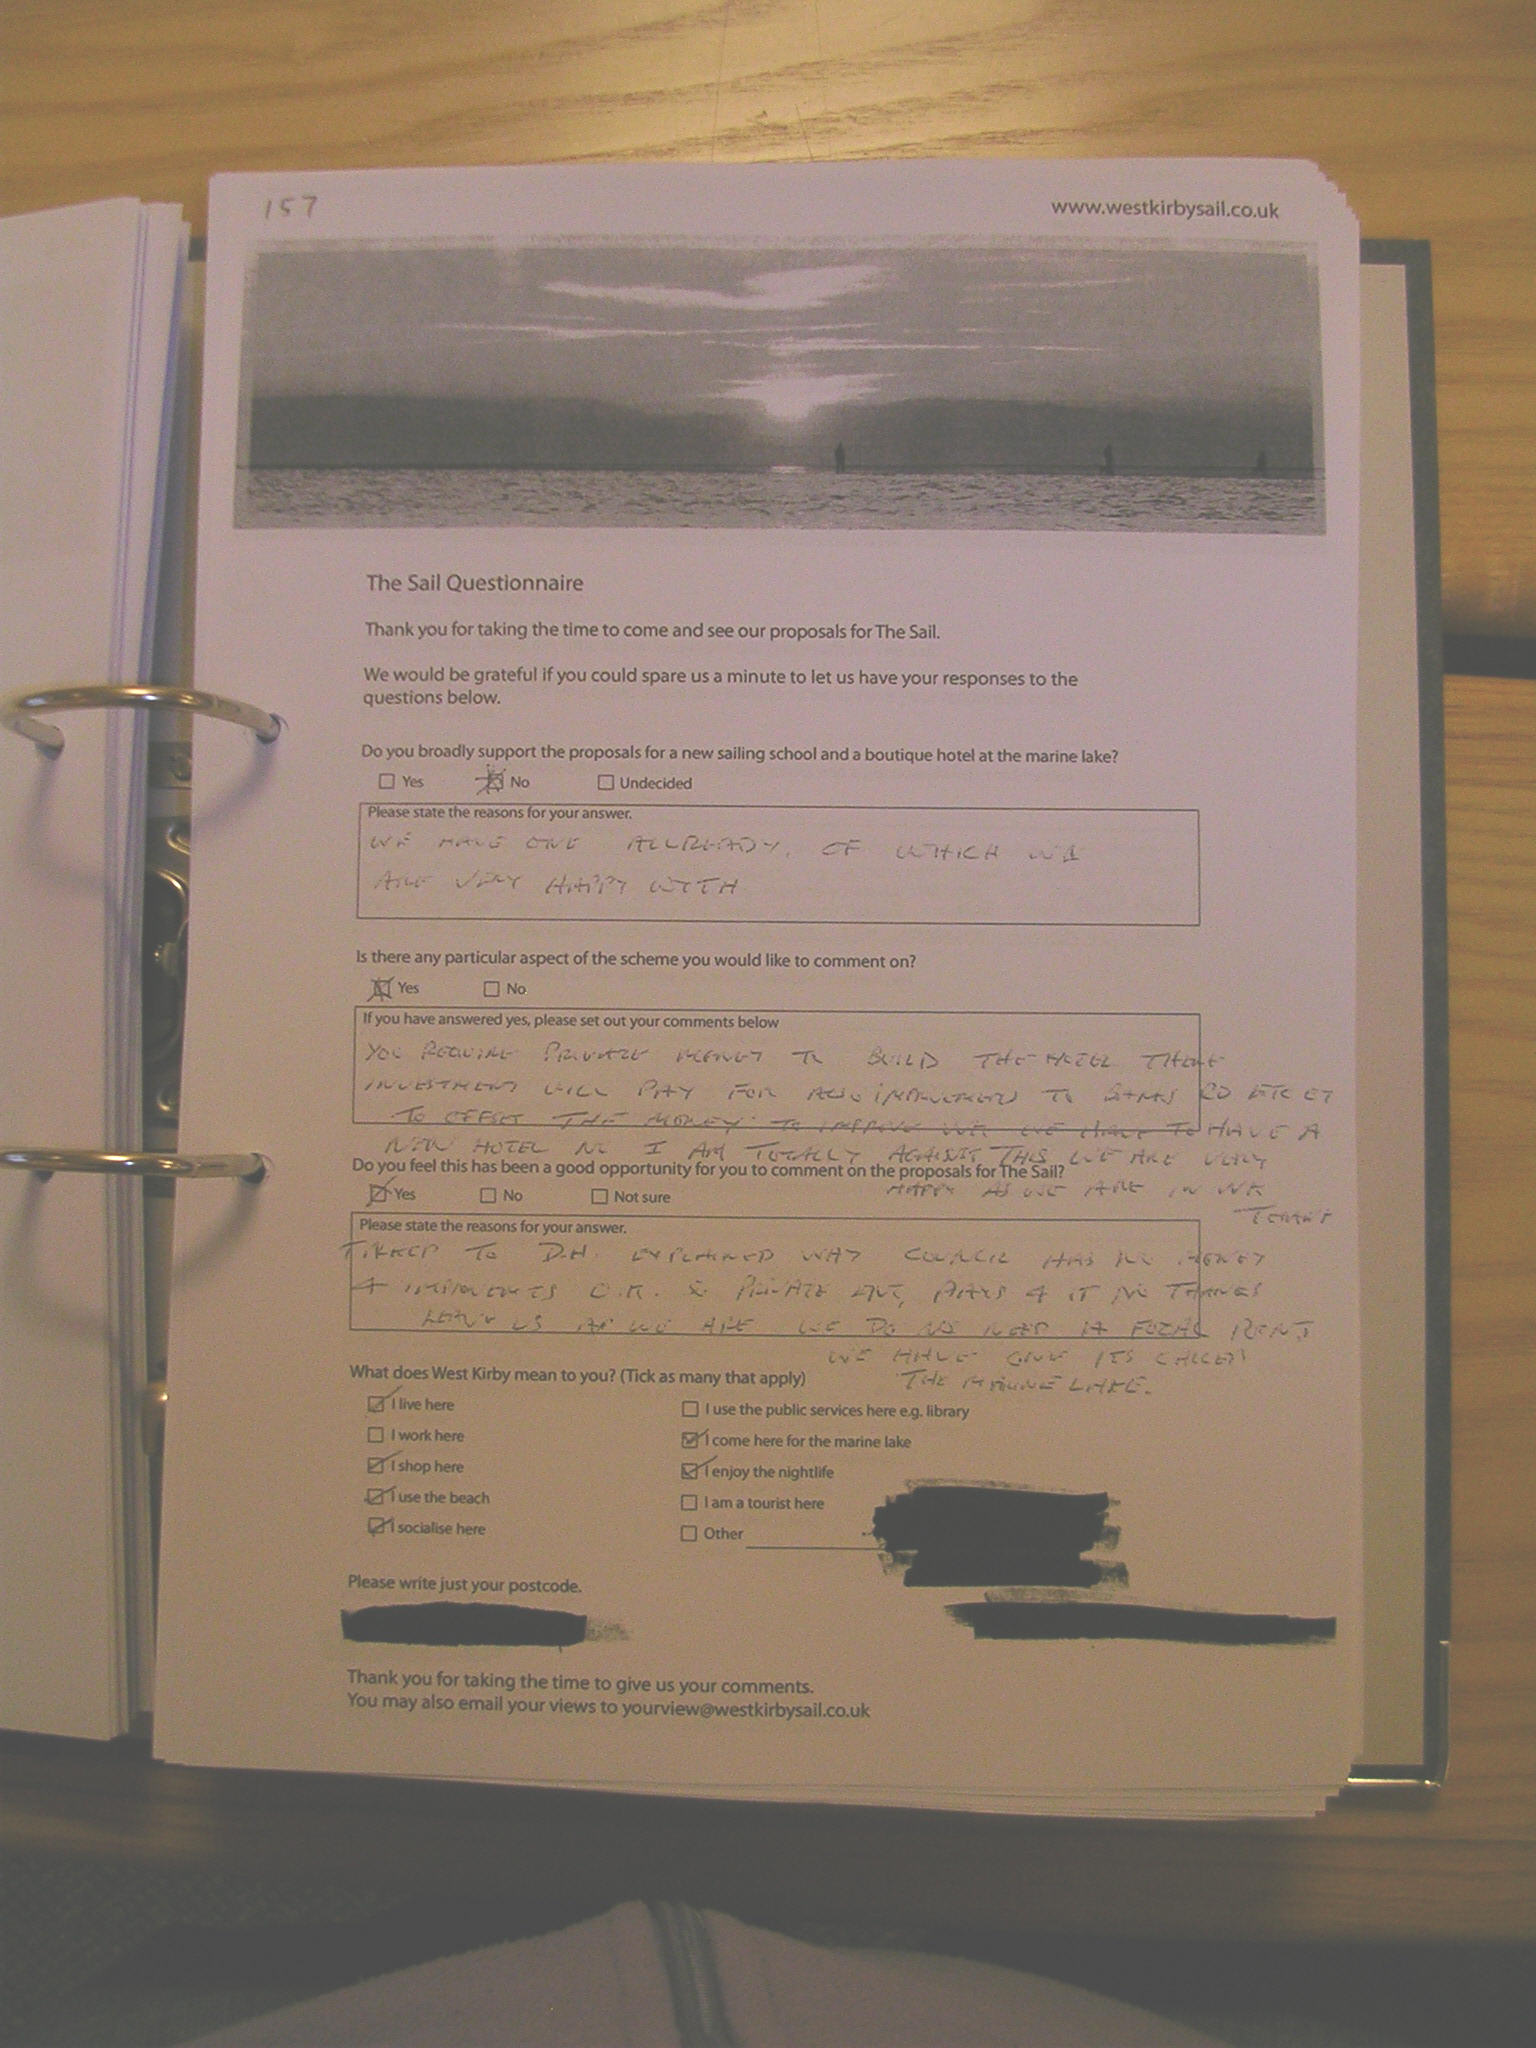 157
www.westkirbysail.co.uk
The Sail Questionnaire
Thank you for taking the time to come and see our proposals for The Sail.
We would be grateful if you could spare us a minute to let us have your responses to the
questions below.
Do you broadly support the proposals for a new sailing school and a boutique hotel at the marine lake?
Yes No Undecided
Please state the reasons for your answer.
WE HAVE ONE ALLREADY, OF WHICH WE
ARE VERY HAPPY WITH
Is there any particular aspect of the scheme you would like to comment on?
Yes No
If you have answered yes, please set out your comments below
YOU REQUIRE PRIVATE MONEY TO BUILD THE HOTEL
INVESTMENT WILL PAY FOR TO
TO OFFSET THE MONEY TO IMPROVE WE HAVE TO HAVE A
NEW HOTEL NO I AM TOTALLY AGAINST THIS WE ARE VERY
Do you feel this has been a good opportunity for you to comment on the proposals for The Sail?
HAPPY AS WE ARE IN WK
Yes No Not sure
Please state the reasons for your answer.
TALKED TO D.H. EXPLAINED WHY COUNCIL HAS NO MONEY
4 O.K. & PRIVATE PAYS 4 IT NO THANKS
LEAVE US AS WE ARE WE DO NOT NEED A FOCAL
WE HAVE ONE ITS CALLED
What does West Kirby mean to you? (Tick as many that apply)
THE MARINE LAKE.
I live here
I work here
I shop here
I use the beach
I socialise here
I use the public services here e.g. library
I come here for the marine lake
I enjoy the nightlife
I am a tourist here
Other
Please write just your postcode.
Thank you for taking the time to give us your comments.
You may also email your views to yourview@westkirbysail.co.uk